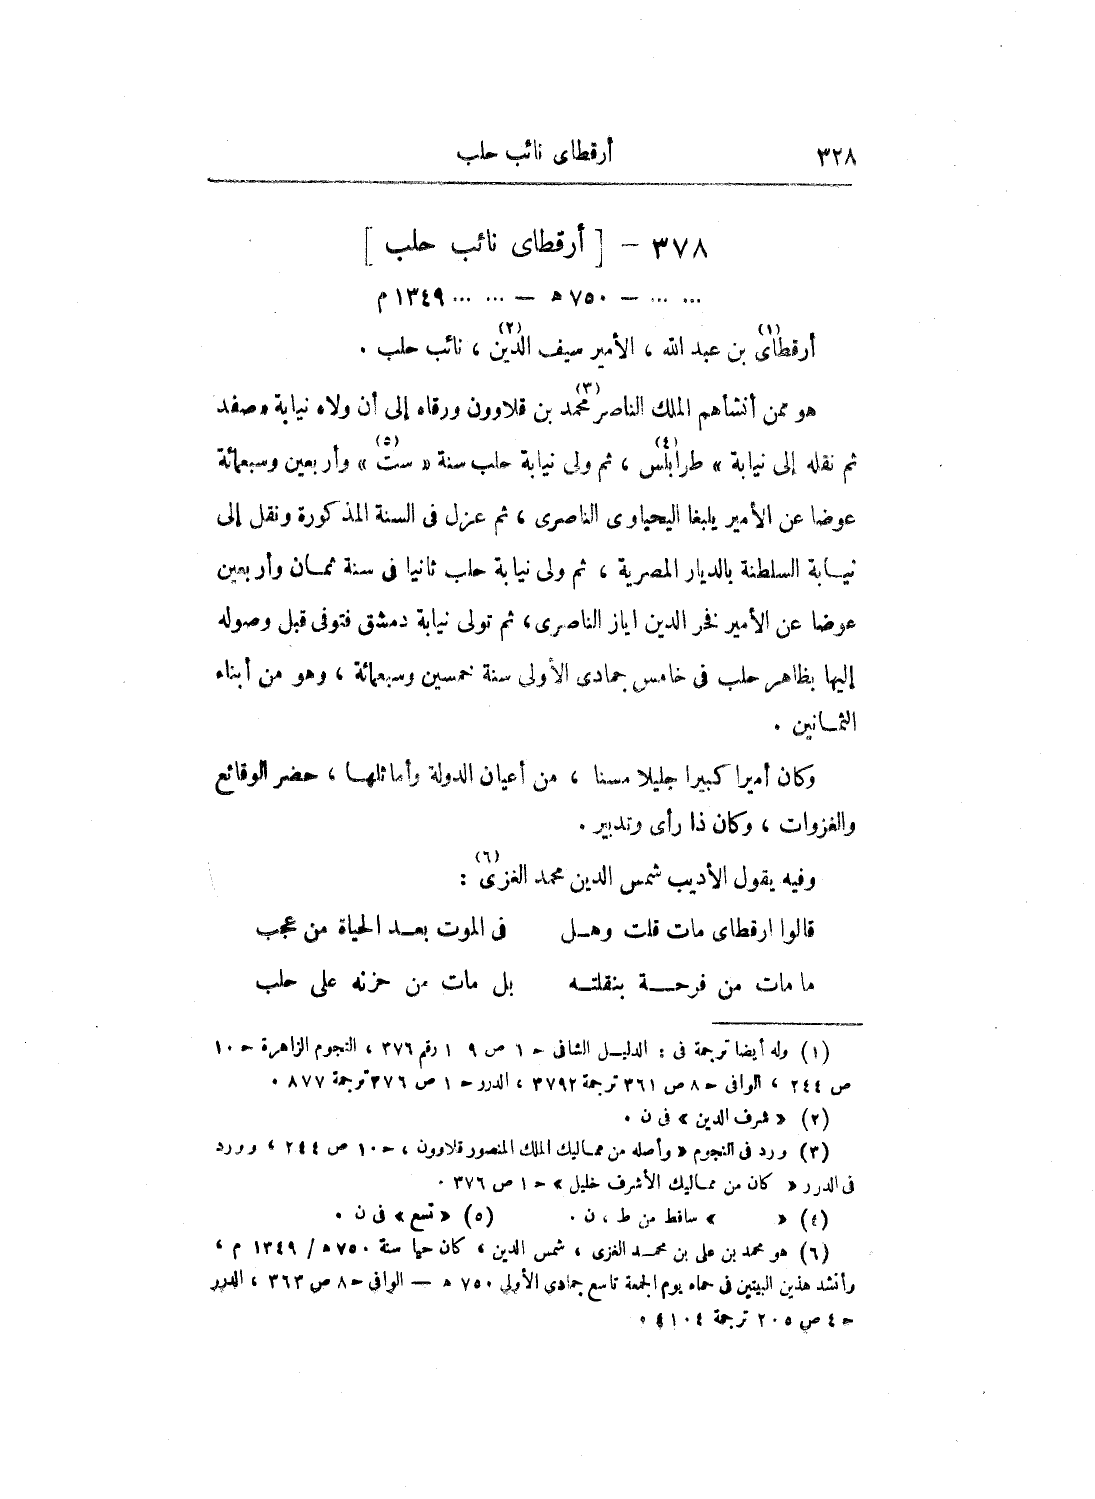 ٣٢٨ أرقطاى نائب حلب
٣٧٨ – [ أرقطاى نائب حلب ]
... ... – ٧٥٠ ﻫ – ... ... ١٣٤٩ م
أرقطاى(١) بن عبد الله ، الأمير سيف الدين(٢) ، نائب حلب .
هو ممن أنشأهم الملك الناصر(٣) محمد بن قلاوون ورقاه إلى أن ولاه نيابة «صفد
ثم نقله إلى نيابة » طرابلس(٤) ، ثم ولى نيابة حلب سنة « ست(٥) » وأربعين وسبعمائة
عوضا عن الأمير يلبغا اليحياوى الناصرى ، ثم عزل فى السنة المذكورة ونقل إلى
نيـابة السلطنة بالديار المصرية ، ثم ولى نيابة حلب ثانيا فى سنة ثمـان وأربعين
عوضا عن الأمير فخر الدين اياز الناصرى، ثم تولى نيابة دمشق فتوفى قبل وصوله
إليها بظاهر حلب فى خامس جمادى الأولى سنة خمسين وسبعمائة ، وهو من أبناء
الثمـانين .
وكان أميرا كبيرا جليلا مسنا ، من أعيان الدولة وأماثلهـا ، حضر الوقائع
والغزوات ، وكان ذا رأى وتدبير .
وفيه يقول الأديب شمس الدين محمد الغزى(٦) :
قالوا ارقطاى مات قلت وهـل فى الموت بعـد الحياة من عجب
ما مات من فرحـة بنقلتـه بل مات من حزنه على حلب
(١) وله أيضا ترجمة فى : الدليـل الشافى حـ ١ ص ١٠٩ رقم ٣٧٦ ، النجوم الزاهرة حـ ١٠
ص ٢٤٤ ، الوافى حـ ٨ ص ٣٦١ ترجمة ٣٧٩٢ ، الدرر حـ ١ ص ٣٧٦ ترجمة ٨٧٧ .
(٢) « شرف الدين » فى ن .
(٣) ورد فى النجوم « وأصله من ممـاليك الملك المنصور قلاوون ، حـ ١٠ ص ٢٤٤ ، وورد
فى الدرر « كان من ممـاليك الأشرف خليل » حـ ١ ص ٣٧٦ .
(٤) « » ساقط من ط ، ن . (٥) « تسع » فى ن .
(٦) هو محمد بن على بن محمـد الغزى ، شمس الدين ، كان حيا سنة ٧٥٠ ﻫ / ١٣٤٩ م ،
وأنشد هذين البيتين فى حماه يوم الجمعة تاسع جمادى الأولى ٧٥٠ ﻫ — الوافى حـ ٨ ص ٣٦٣ ، الدرر
حـ ٤ ص ٢٠٥ ترجمة ٤١٠٤ .